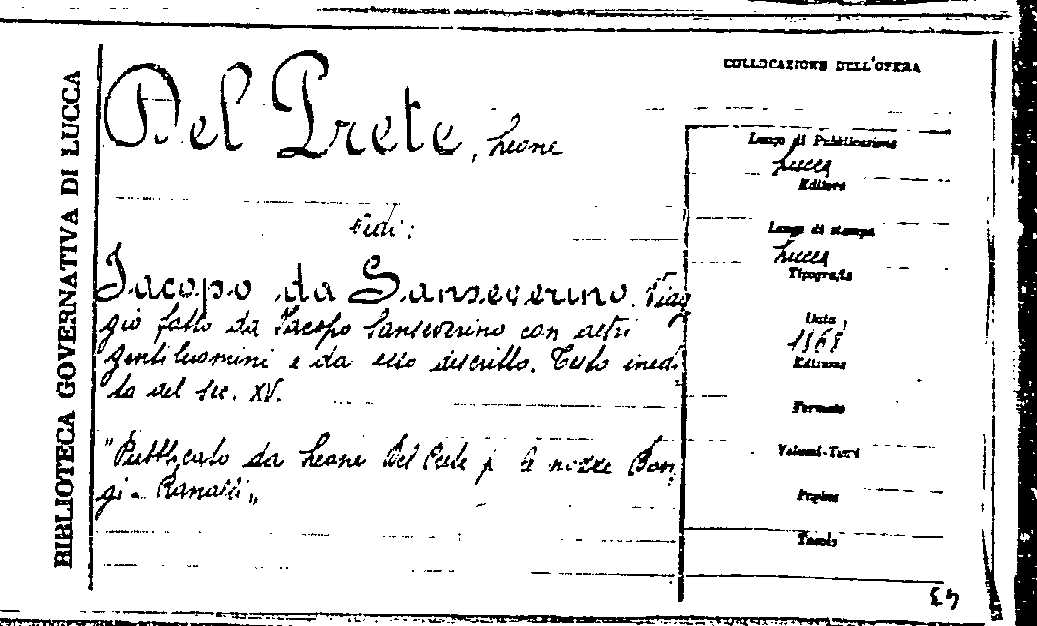 BIBLIOTECA GOVERNATIVA DI LUCCA
Del Prete, Leone
Vedi:
Jacopo da Sanseverino. Viag
gio fatto da Jacopo Sanseverino con altri
gentiluomini e da esso descritto. Testo inedi
to del sec. XV.
"Pubblicato da Leone Del Prete p. le nozze Bon
gi - Ranalli"
COLLOCAZIONE DELL'OPERA
Luogo di Pubblicazione
Lucca
Editore
Luogo di stampa
Lucca
Tipografia
Data
1868
Edizione
Formato
Volumi-Tomi
Pagine
Tavole
43